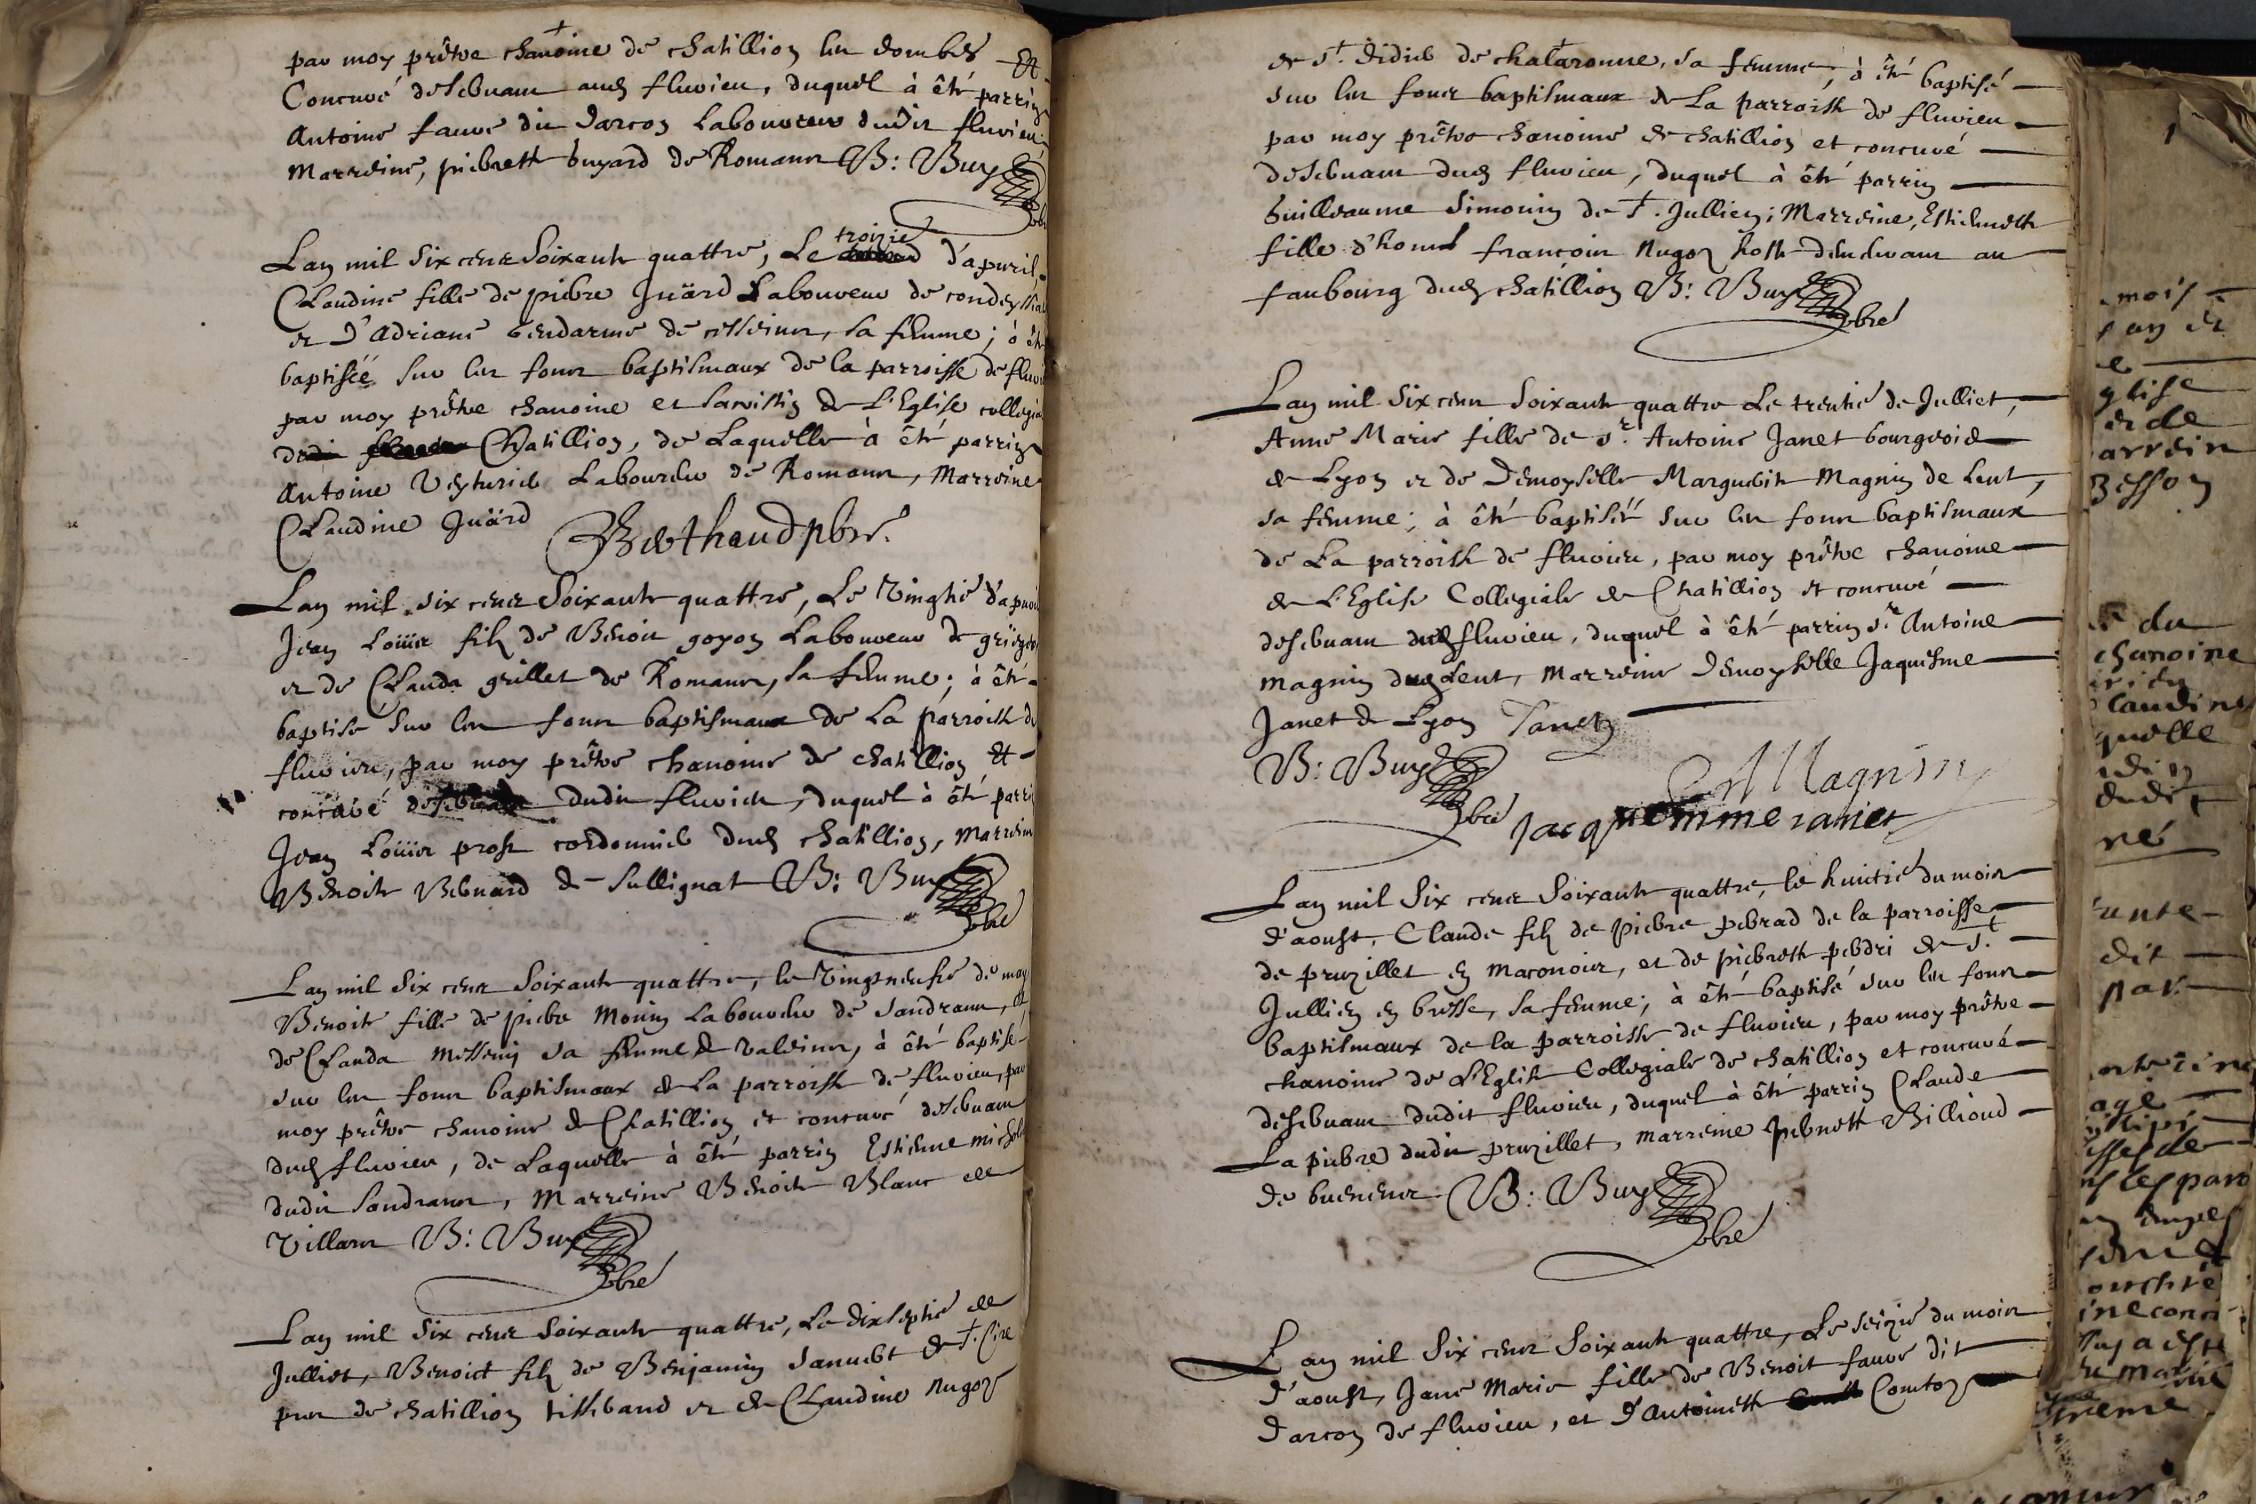 par moy prêtre chanoine de chatillion les dombes Et
Concuré desservant aud fluvieu, duquel à êté parrin
Antoine favre dit darcon Laboureur dudit fluvieu
Marreine, pierrette buyard de Romans B: Buy pbre
Lan mil six cens soixante quattre, Le troizie d'apvril,
Claudine fille de pierre Juärd Laboureur de condeyssia
et d'Adriane Gendarme de , sa femme; à êté
baptiséé sur les fons baptismaux de la parroisse de fluvi
par moy prêtre chanoine et sacristin de L'Eglise collegia
dudit Chatillion, de Laquelle à êté parrin
Antoine Laboureur de Romans, Marreine
Claudine Juärd Berthaud pbre.
Lan mil six cens soixante quattre, Le vingtié d'apvril
Jean Loüis fils de Benoit goyon Laboureur de
et de Clauda grillet de Romans, sa femme; à êté
baptisé sur les fons baptismaux de La parroisse de
fluvieu, par moy prêtre chanoine de chatillion Et
concuré desservant dudit fluvieu, duquel à êté parrin
Jean Loüis prost cordonnier dud chatillion, Marreine
Benoite Bernard de Sullignat B: Buy pbre
Lan mil six cens soixante quattre, le vingtneufié de may
Benoite fille de pierre Monin Laboureur de Sandrans, et
de Clauda sa femme de valeins, à êté baptisé
sur les fons baptismaux de La parroisse de fluvieu, par
moy prêtre chanoine de Chatillion et concuré desservant
dud fluvieu, de Laquelle à êté parrin Estienne
dudit Sandrans, Marreine Benoite Blanc de
Villars B: Buy pbre
Lan mil six cens soixante quattre, Le dixseptié de
Julliet, Benoict fils de Benjamin Januert de St. Cire
pres de chatillion tisserand et de Claudine Nugoz
de St. didier de chalaronne, sa femme, à êté baptisé
sur les fons baptismaux de La parroisse de fluvieu
par moy prêtre chanoine de chatillion et concuré
desservant dud fluvieu, duquel à êté parrin
Guilleaume Simonin de St. Jullien; Marreine, Estiennette
fille d'honnê françois Nugoz hoste demeurant au
faubourg dud chatillion B: Buy pbre
Lan mil six cens soixante quattre Le trentié de Julliet,
Anne Marie fille de Sr. Antoine Janet bourgeois
de Lyon et de Demoyselle Marguerite Magnin de Lent,
sa femme; à êté baptiséé sur les fons baptismaux
de La parroisse de fluvieu, par moy prêtre chanoine
de L'Eglise Collegiale de Chatillion et concuré
desservant dud fluvieu, duquel à êté parrin Sr. Antoine
Magnin dud Lent, Marreine Demoyselle Jaquesme
Janet de Lyon Janet
B: Buy pbre Magnin
Jacquemme ianet
Lan mil six cens soixante quattre, le huictié du mois
d'aoust, Claude fils de pierre perrad de la parroisse
de pruzillet en maconois, et de pierrette perdri de St.
Jullien en bresse, sa femme; à êté baptisé sur les fons
baptismaux de la parroisse de fluvieu, par moy prêtre
chanoine de L'Eglise Collegiale de chatillion et concuré
desservant dudit fluvieu, duquel à êté parrin Claude
La pierre dudit pruzillet, marreine pernette Billioud
de bueneins B: Buy pbre
Lan mil six cens soixante quattre, Le seizié du mois
d'aoust, Jane Marie fille de Benoit favre dit
darcon de fluvieu, et d'Antoinette Comtoz
mois
glise
et de
arrein
Besson
du
chanoine
claudine
quelle
dudit
né
dit
par